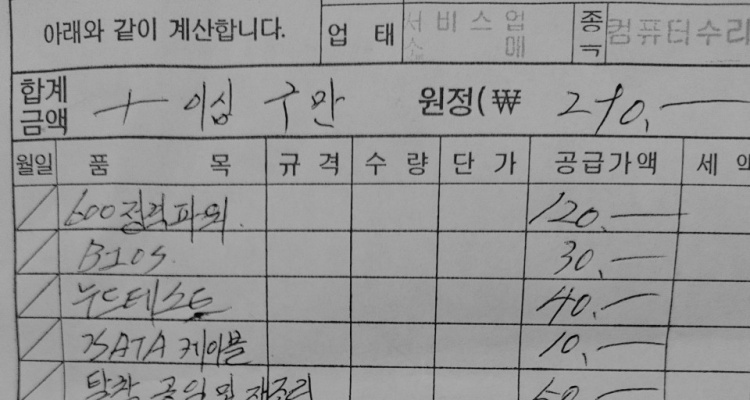 아래와 같이 계산합니다. 업 태 서비스업 소 매 종 컴퓨터수리
합계금액 이십 구만 원정(₩ 290,—
월일 품 목 규 격 수 량 단 가 공급가액 세 액
600정격파워 120,—
BIOS 30,—
누드테스트 40,—
SATA 케이블 10,—
탈착 공임 및 재조립